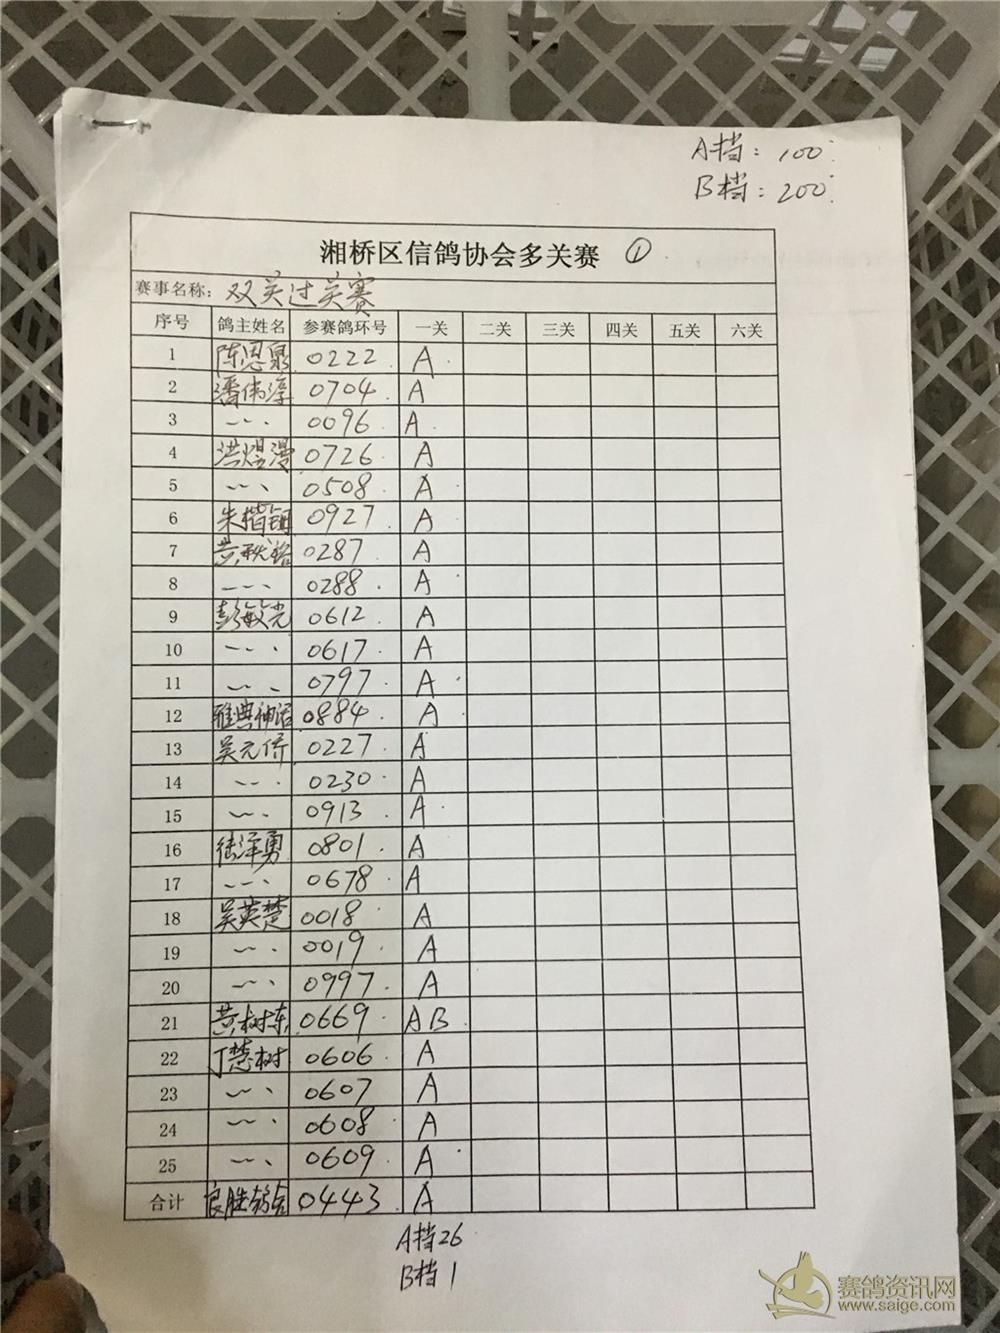 A档：100
B档：200
湘桥区信鸽协会多关赛 ①
赛事名称：双关过关赛
序号 鸽主姓名 参赛鸽环号 一关 二关 三关 四关 五关 六关
1 陈恩泉 0222 A
2 潘伟淳 0704 A
3 0096 A
4 洪煜漫 0726 A
5 0508 A
6 朱楷 0927 A
7 黄秋裕 0287 A
8 0288 A
9 彭敏光 0612 A
10 0617 A
11 0797 A
12 雅典神话 0884 A
13 吴元侨 0227 A
14 0230 A
15 0913 A
16 泽勇 0801 A
17 0678 A
18 吴英楚 0018 A
19 0019 A
20 0997 A
21 黄树东 0669 AB
22 丁慧树 0606 A
23 0607 A
24 0608 A
25 0609 A
合计 良胜鸽舍 0443 A
A档26
B档1
赛鸽资讯网
www.saige.com